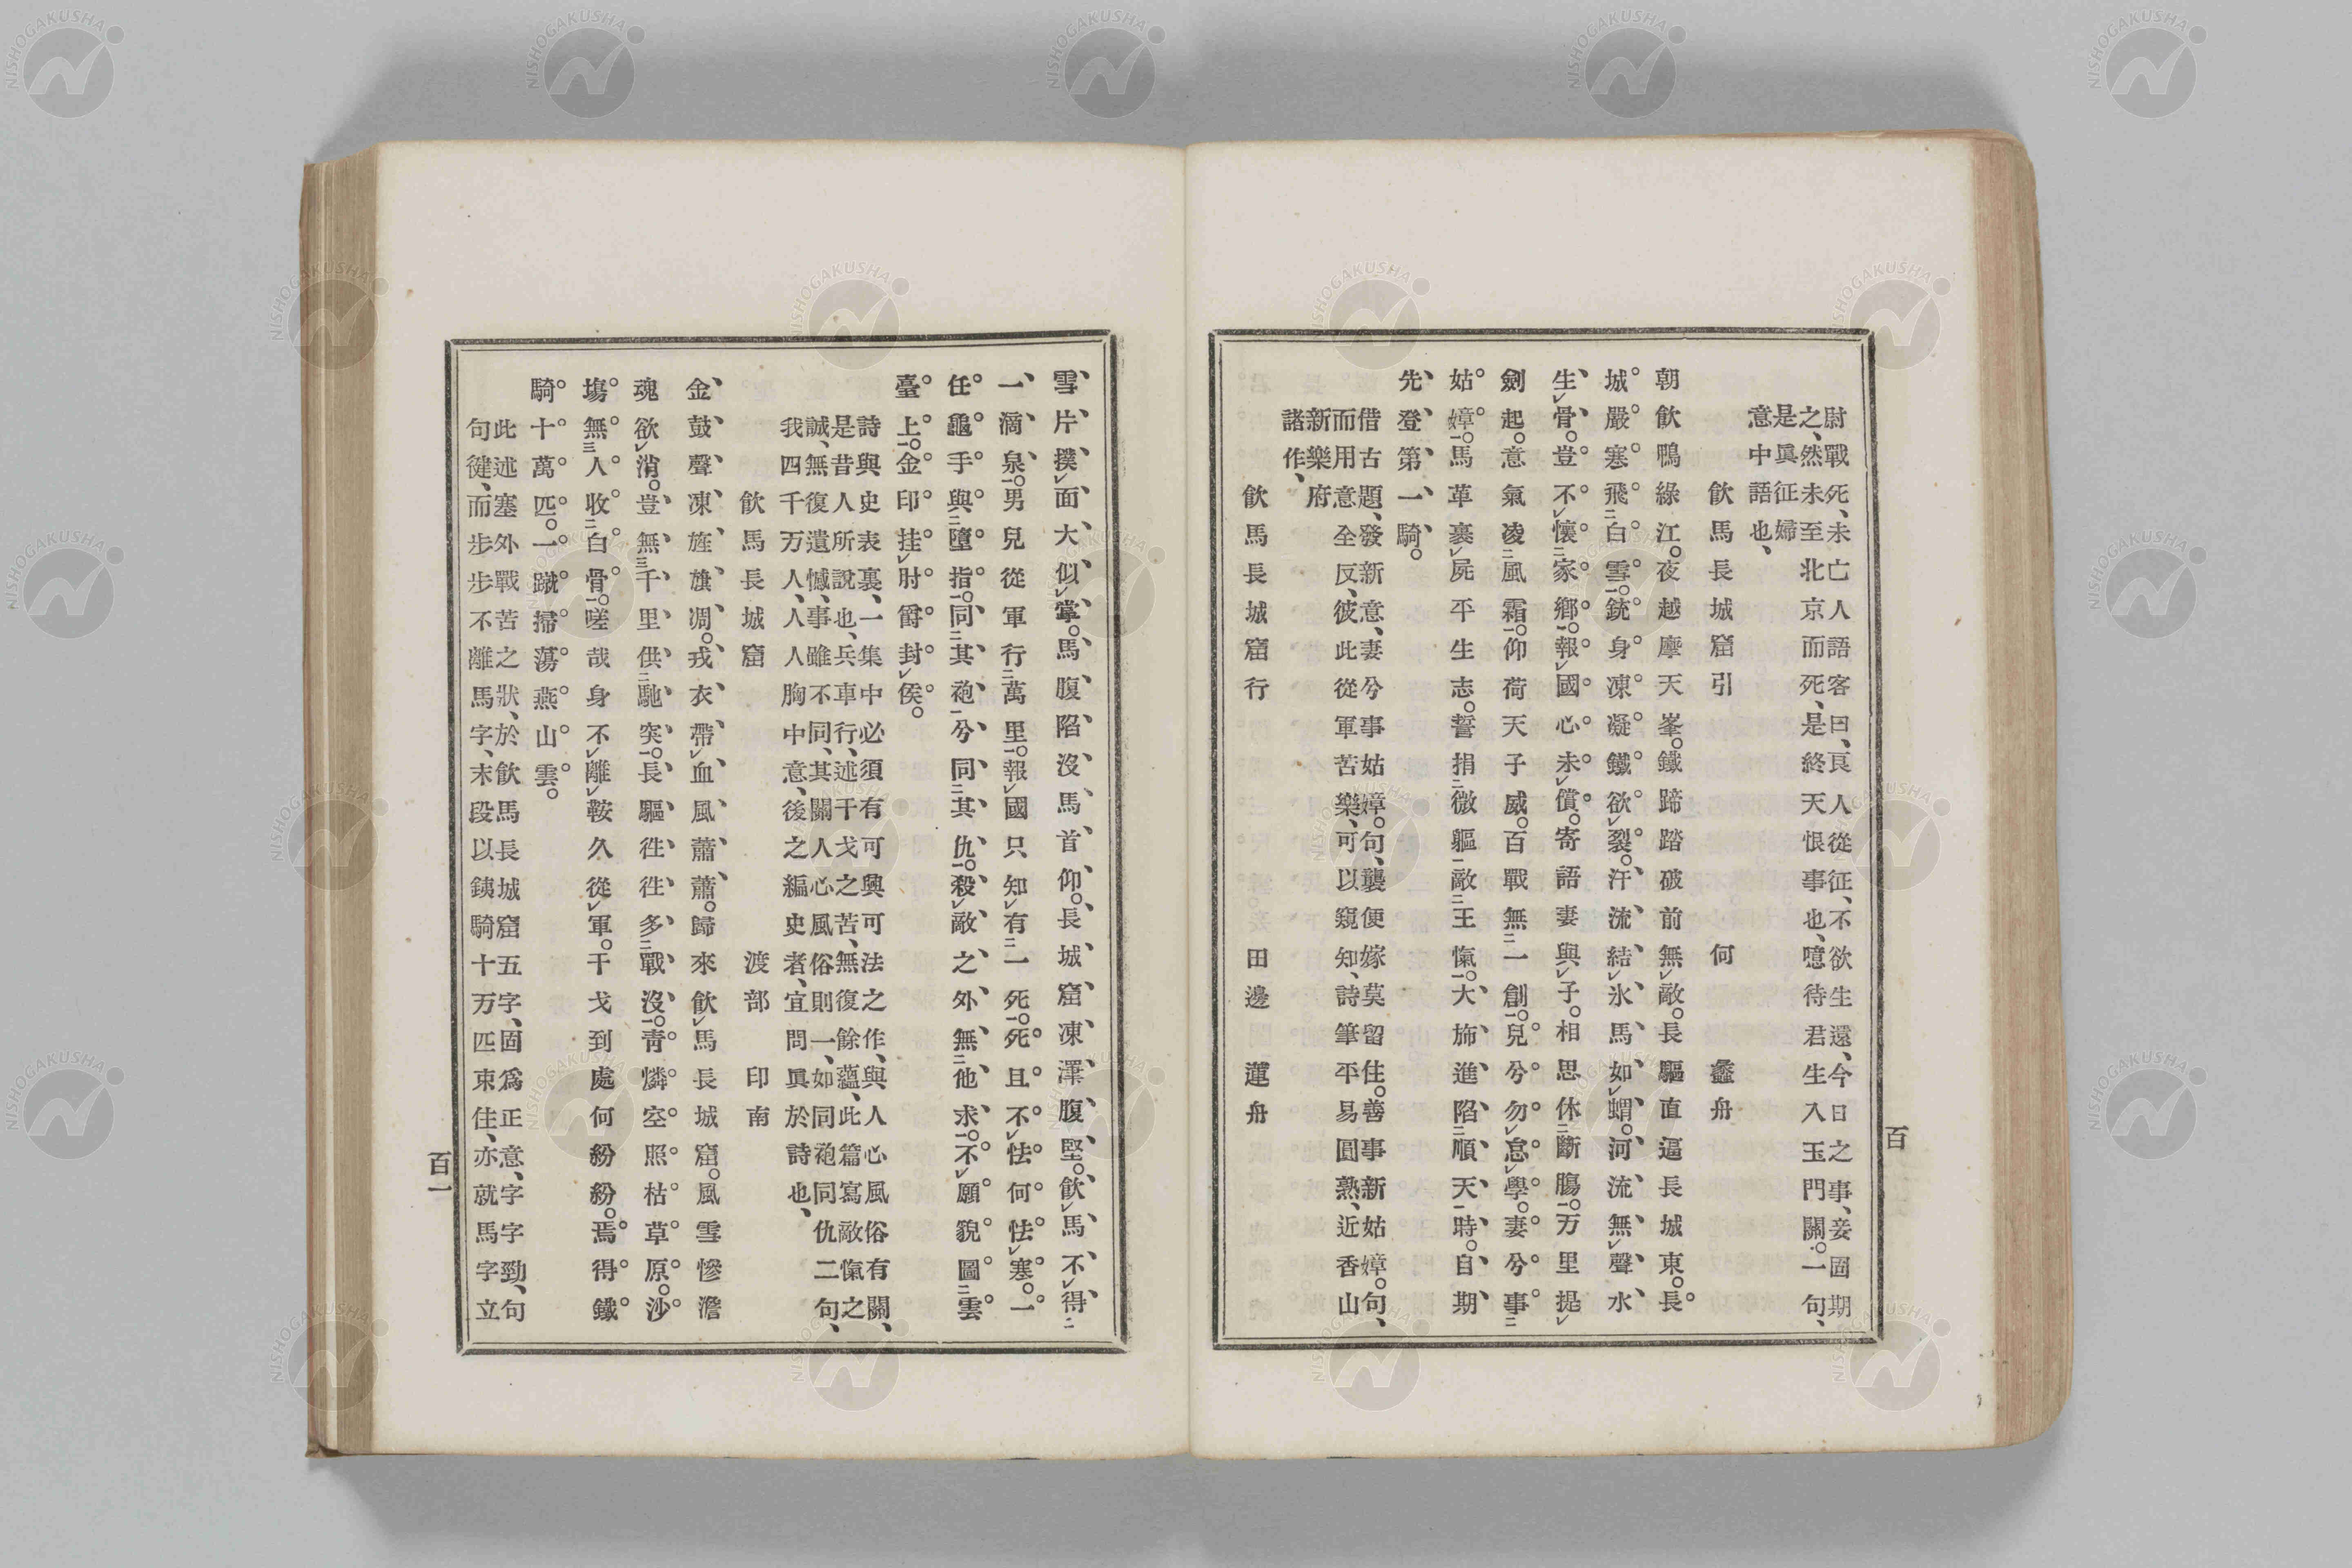 尉戰死、未亡人語客曰、良人從征、不欲生還、今日之事、妾固期
之、然未至北京而死、是終天恨事也、噫待君生入玉門關。一句、
是眞征婦
意中語也、
飮馬長城窟引　何　蠡舟
朝飮鴨綠江。夜越摩天峯。鐵蹄踏破前無敵。長驅直逼長城東。長
城嚴塞飛白雪。銃身凍凝鐵欲裂。汗流結氷馬如蝟。河流無聲水
生骨。豈不懷家鄕。報國心未償。寄語妻與子。相思休斷膓。万里提
劍起。意氣凌風霜。仰荷天子威。百戰無一創。兒兮勿怠學。妻兮事
姑嫜。馬革裹屍平生志。誓捐微軀敵王愾。大旆進陷順天時。自期
先登第一騎。
借古題、發新意、妻兮事姑嫜。句、襲便嫁莫留住。善事新姑嫜。句、
而用意全反、彼此從軍苦樂、可以窺知、詩筆平易圓熟、近香山
新樂府
諸作、
飮馬長城窟行　田邊蓮舟
百
雪片撲面大似掌。馬腹陷沒馬首仰。長城窟凍澤腹堅。飮馬不得
一滴泉。男兒從軍行萬里。報國只知有一死。死且不怯何怯塞。一
任龜手與墮指。同其袍兮同其仇。殺敵之外無他求。不願貌圖雲
臺上。金印挂肘爵封侯。
詩與史表裏、一集中必須有可興可法之作、與人心風俗有關、
是昔人所說也、兵車行、述干戈之苦、無復餘蘊、此篇寫敵愾之
誠、無復遺憾、事雖不同、其關人心風俗則一、如同袍同仇二句、
我四千万人、人人胸中意、後之編史者、宜問眞於詩也、
飮馬長城窟　渡部　印南
金鼓聲凍旌旗凋。戎衣帶血風蕭蕭。歸來飮馬長城窟。風雪慘澹
魂欲消。豈無千里供馳突。長驅徃徃多戰沒。靑燐空照枯草原。沙
塲無人收白骨。嗟哉身不離鞍久從軍。干戈到處何紛紛。焉得鐵
騎十萬匹。一蹴掃蕩燕山雲。
此述塞外戰苦之狀、於飮馬長城窟五字、固爲正意、字字勁、句
句徤、而步步不離馬字、末段以銕騎十万匹束住、亦就馬字立
百一